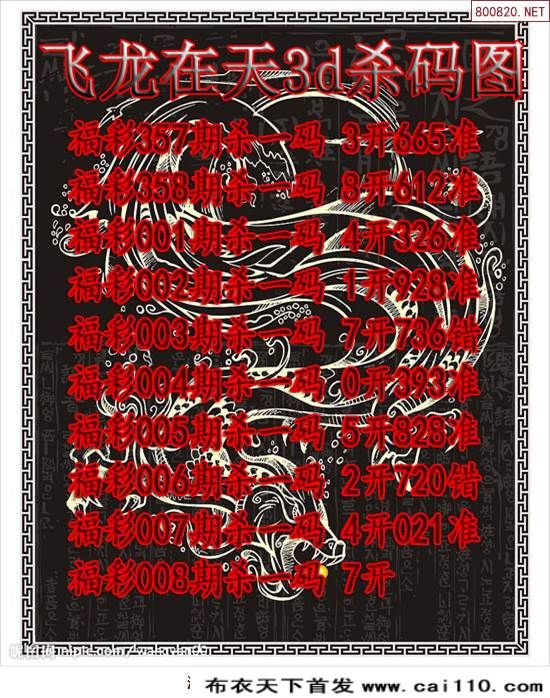 800820.NET
飞龙在天3d杀码图
福彩357期杀一码 3开665准
福彩358期杀一码 8开612准
福彩001期杀一码 4开326准
福彩002期杀一码 1开928准
福彩003期杀一码 7开736错
福彩004期杀一码 0开393准
福彩005期杀一码 5开828准
福彩006期杀一码 2开720错
福彩007期杀一码 4开021准
福彩008期杀一码 7开
布衣天下首发 www.cai110.com